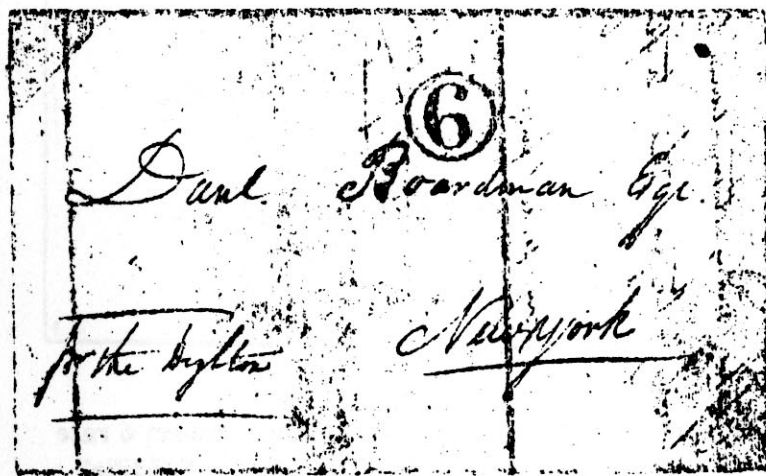 6
Danl. Boardman Esqr.
New York
pr the Dighton